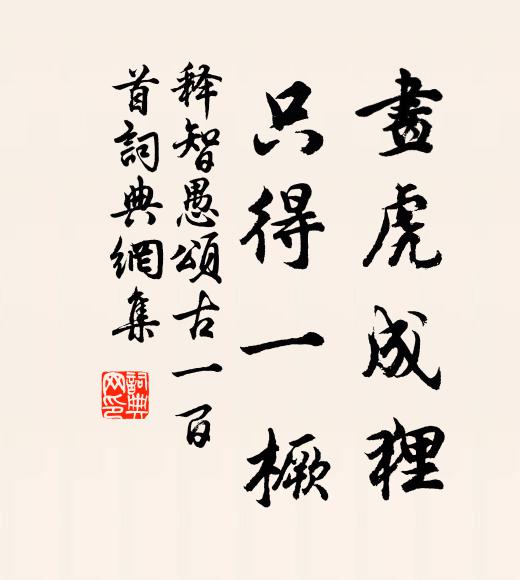 畫虎成狸
只得一橛
释智愚頌古一百
首詞典網集
詞典
网印